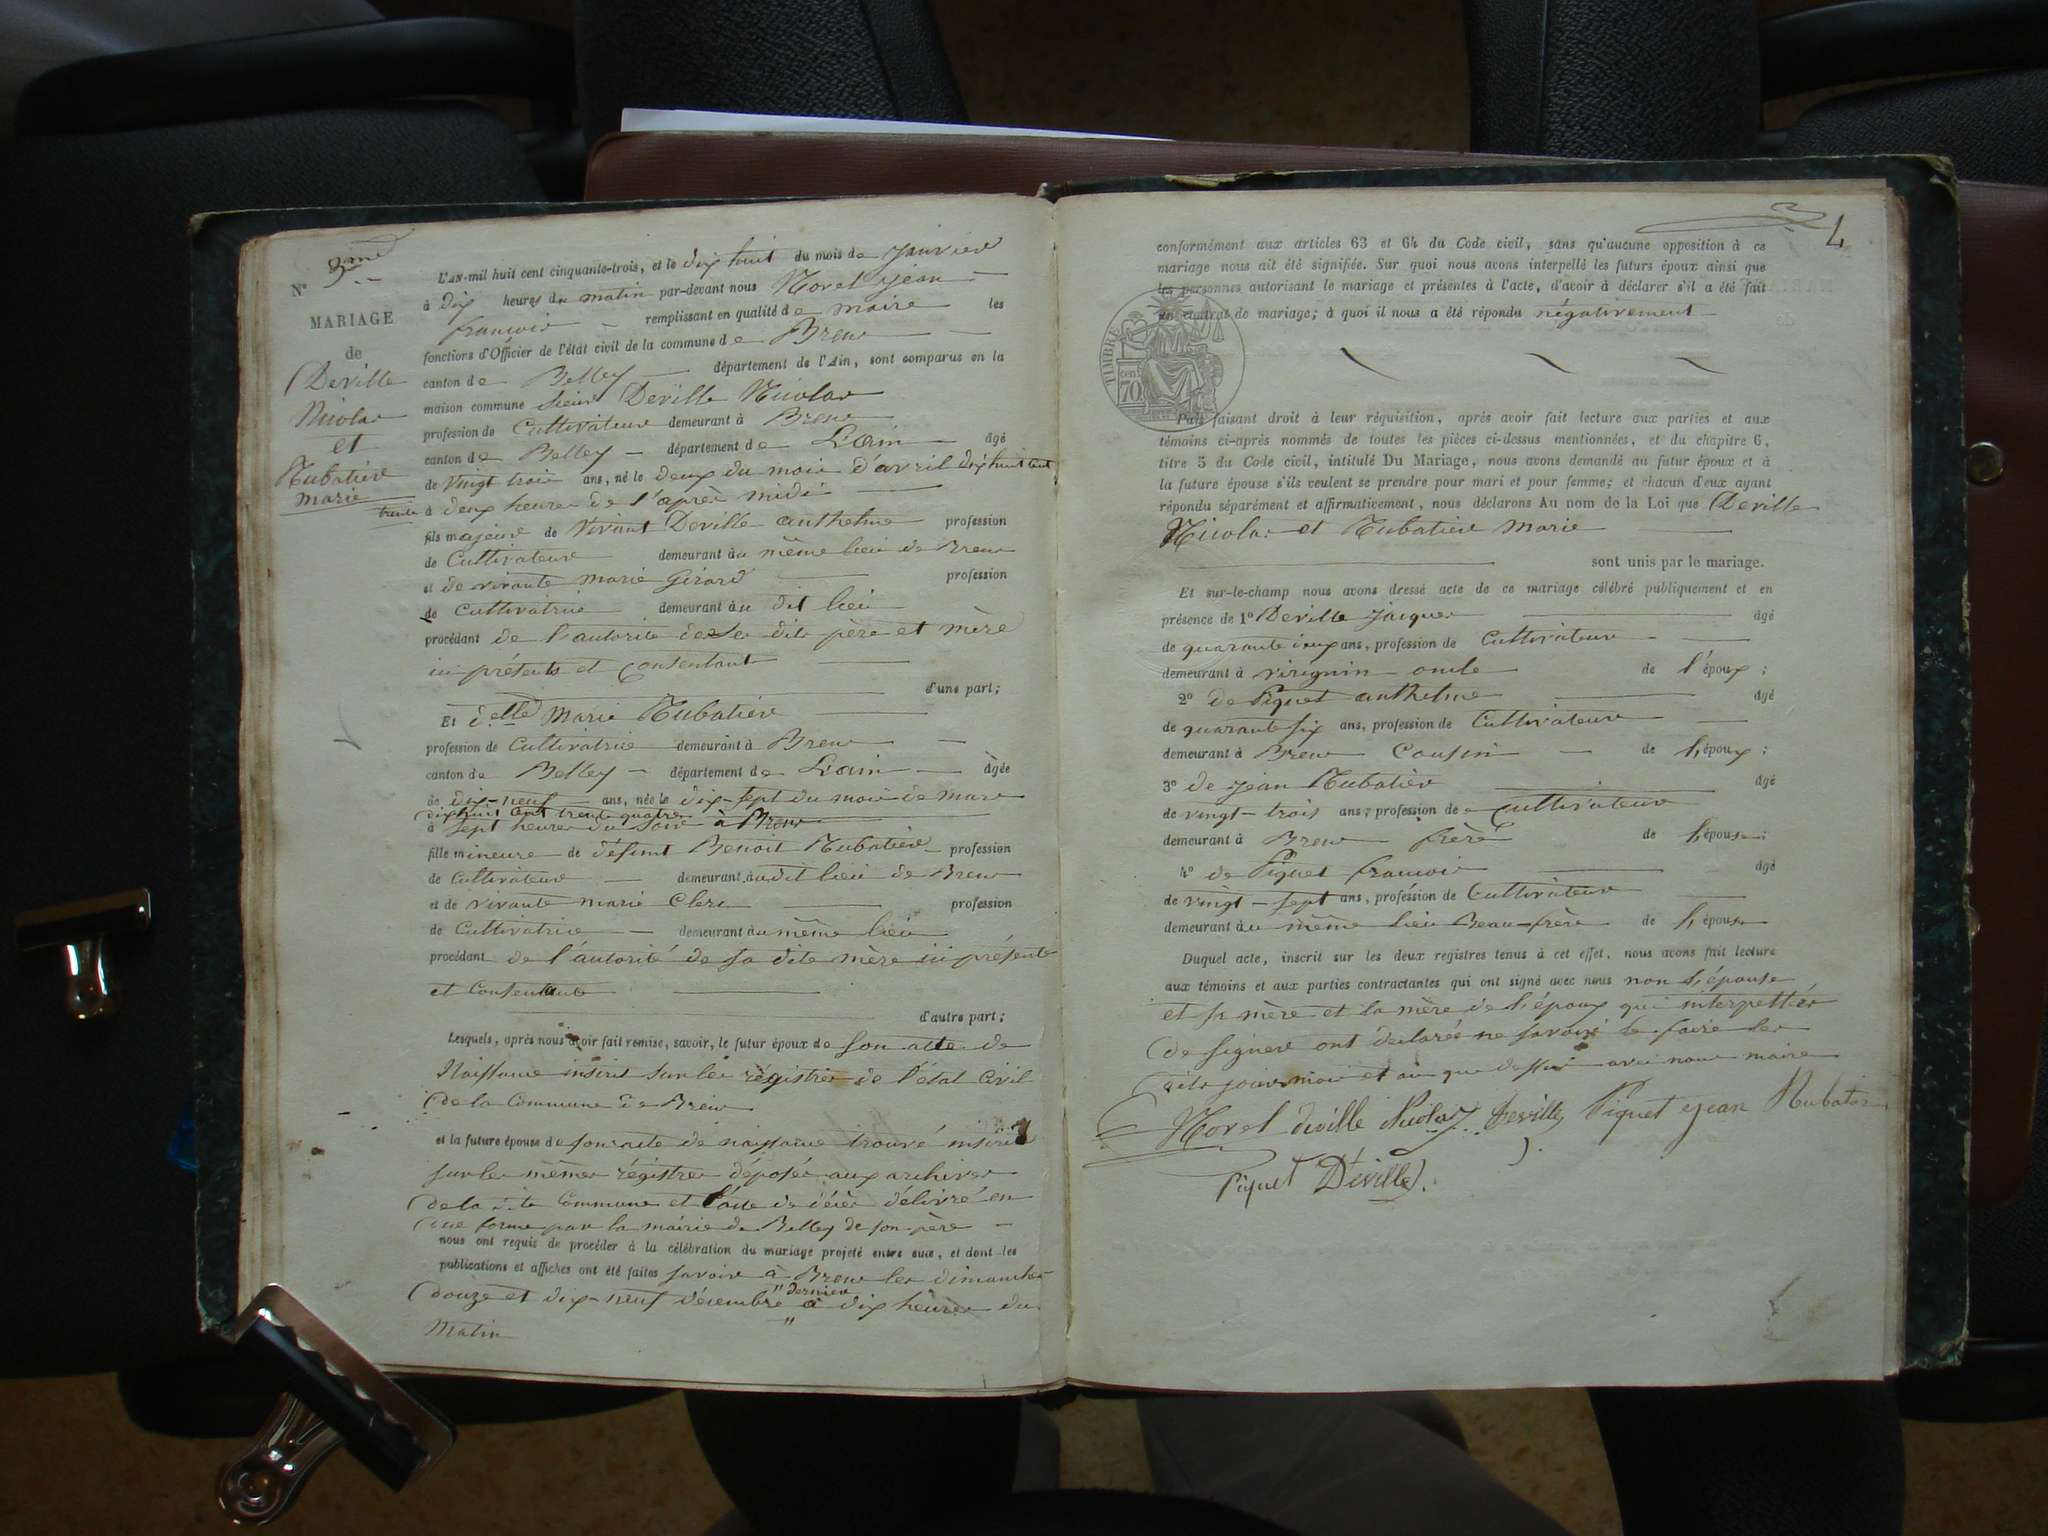 N° 3me
MARIAGE
de
Deville
Nicolas
et
Rubatier
marie
L'AN mil huit cent cinquante-trois, et le dix huit du mois de Janvier
à Dix heures du matin par-devant nous Morel Jean
françois remplissant en qualité de maire les
fonctions d'Officier de l'état civil de la commune de Brens
canton de Belley département de l'Ain, sont comparus en la
maison commune sieur Deville Nicolas
profession de Cultivateur demeurant à Brens
canton de Belley département de L'ain âgé
de vingt trois ans, né le deux du mois d'avril dix huit cent
trente à deux heures de l'après midi
fils majeur de vivant Deville anthelme profession
de Cultivateur demeurant au même lieu de Brens
et de vivante marie Girard profession
de Cultivatrice demeurant au dit lieu
procédant de l'autorité de ses dits père et mère
ici présents et consentant
d'une part;
Et delle Marie Rubatier
profession de Cultivatrice demeurant à Brens
canton de Belley département de L'ain âgée
de dix-neuf ans, née le dix-sept du mois de mars
dix huit cent trente quatre
à sept heures du soir à Brens
fille mineure de défunt Benoit Rubatier profession
de Cultivateur demeurant audit lieu de Brens
et de vivante marie Clerc profession
de Cultivatrice demeurant au même lieu
procédant de l'autorité de sa dite mère ici présente
et Consentante
d'autre part;
Lesquels, après nous avoir fait remise, savoir, le futur époux de son acte de
Naissance inscrit sur les régistres de l'état Civil
de la Commune de Brens
et la future épouse de son acte de naissance trouvé inscrit
sur les mêmes régistres déposés aux archives
de la dite Commune et l'acte de décès délivré en
due forme par la mairie de Belley de son père
nous ont requis de procéder à la célébration du mariage projeté entre eux, et dont les
publications et affiches ont été faites savoir à Brens les dimanches
douze et dix-neuf décembre " dernier " à dix heures du
Matin
4
conformément aux articles 63 et 64 du Code civil, sans qu'aucune opposition à ce
mariage nous ait été signifiée. Sur quoi nous avons interpellé les futurs époux ainsi que
les personnes autorisant le mariage et présentes à l'acte, d'avoir à déclarer s'il a été fait
un contrat de mariage; à quoi il nous a été répondu négativement
TIMBRE
70 cent
Puis faisant droit à leur réquisition, après avoir fait lecture aux parties et aux
témoins ci-après nommés de toutes les pièces ci-dessus mentionnées, et du chapitre 6,
titre 5 du Code civil, intitulé Du Mariage, nous avons demandé au futur époux et à
la future épouse s'ils veulent se prendre pour mari et pour femme; et chacun d'eux ayant
répondu séparément et affirmativement, nous déclarons Au nom de la Loi que Deville
Nicolas et Rubatier Marie
sont unis par le mariage.
Et sur-le-champ nous avons dressé acte de ce mariage célébré publiquement et en
présence de 1° Deville Jacques âgé
de quarante ans, profession de Cultivateur
demeurant à virignin oncle de l'époux;
2° de Piquet anthelme âgé
de quarante six ans, profession de Cultivateur
demeurant à Brens Cousin de l'époux;
3° de Jean Rubatier âgé
de vingt-trois ans, profession de Cultivateur
demeurant à Brens frère de l'épouse;
4° de Piquet françois âgé
de vingt-sept ans, profession de Cultivateur
demeurant au même lieu Beau-frère de l'épouse
Duquel acte, inscrit sur les deux registres tenus à cet effet, nous avons fait lecture
aux témoins et aux parties contractantes qui ont signé avec nous non l'épouse
et sa mère et la mère de l'époux qui interpellés
de signer ont déclarés ne savoir le faire les
dits jours mois et an que dessus avec nous maire
Morel deville Nicolas Deville Piquet Jean Rubatier
Piquet Déville